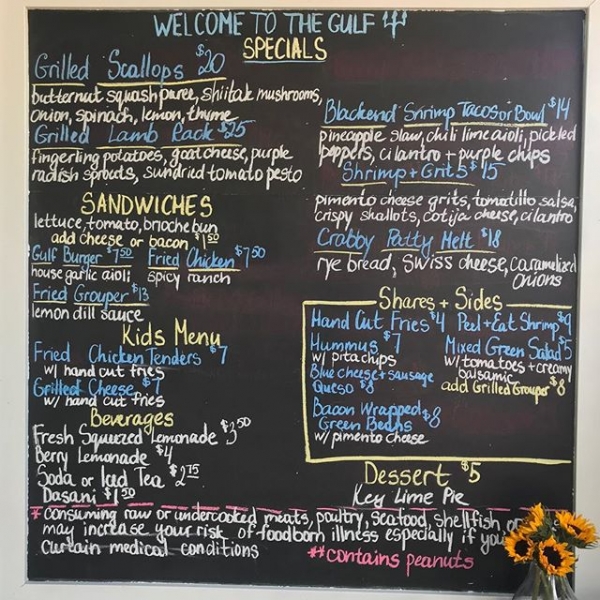 WELCOME TO THE GULF
SPECIALS
Grilled Scallops $20
butternut squash puree, shiitak mushrooms,
onion, spinach, lemon, thyme
Grilled Lamb Rack $25
fingerling potatoes, goat cheese, purple
radish sprouts, sundried tomato pesto
Blackend Shrimp Tacos or Bowl $14
pineapple slaw, chili lime aioli, pickled
peppers, cilantro + purple chips
Shrimp + Grits $15
pimento cheese grits, tomatillo salsa,
crispy shallots, cotija cheese, cilantro
Crabby Patty Melt $18
rye bread, swiss cheese, caramelized
onions
SANDWICHES
lettuce, tomato, brioche bun
add cheese or bacon $1.50
Gulf Burger $7.50 Fried Chicken $7.50
house garlic aioli spicy ranch
Fried Grouper $13
lemon dill sauce
Kids Menu
Fried Chicken Tenders $7
w/ hand cut fries
Grilled Cheese $7
w/ hand cut fries
Beverages
Fresh Squeezed Lemonade $3.50
Berry Lemonade $4
Soda or Iced Tea $2.75
Dasani $1.50
Shares + Sides
Hand Cut Fries $4
Hummus $7
w/ pita chips
Blue cheese + sausage
Queso $8
Bacon Wrapped $8
Green Beans
w/ pimento cheese
Peel + Eat Shrimp $9
Mixed Green Salad $5
w/ tomatoes + creamy
balsamic
add Grilled Grouper $8
Dessert $5
Key Lime Pie
* consuming raw or undercooked meats, poultry, seafood, shellfish or
may increase your risk of foodborn illness especially if you
curtain medical conditions
** contains peanuts